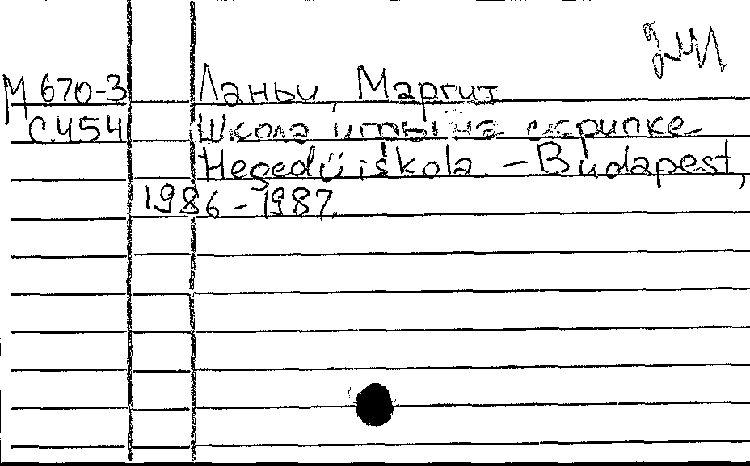 М 670-3 Ланьи, Маргит
С454 Школа игры на скрипке
Hegedü iskola - Budapest,
1986-1987.